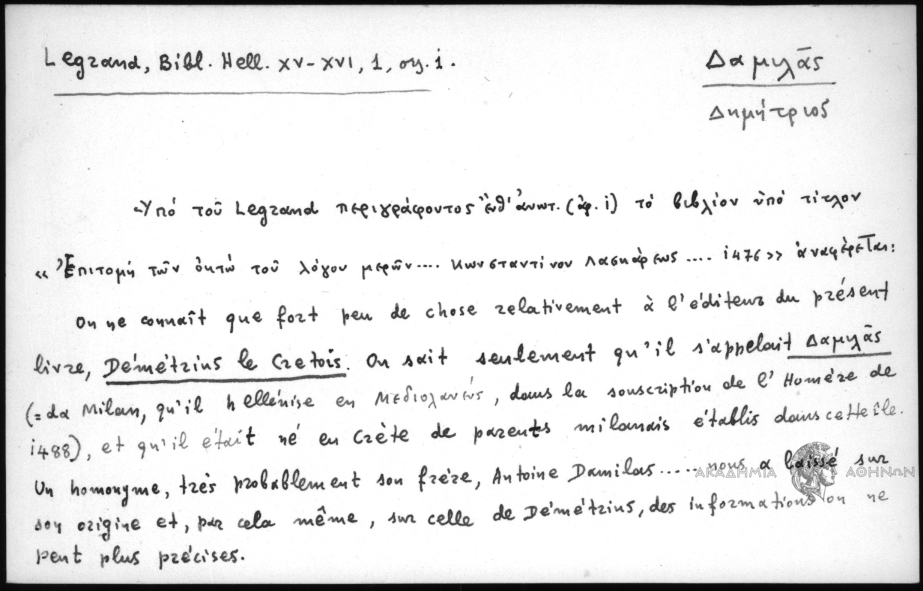 Legrand, Bibl. Hell. XV-XVI, 1, σχ. i.
Δαμιλᾶς
Δημήτριος
Ὑπό τοῦ Legrand περιγράφοντος ἔνθ' ἀνωτ. (ἀρ. i) τό βιβλίον ὑπό τίτλον
«Ἐπιτομή τῶν ὀκτώ τοῦ λόγου μερῶν.... Κωνσταντίνου Λασκάρεως .... i476» ἀναφέρεται:
On ne connaît que fort peu de chose relativement à l'éditeur du présent
livre, Démétrius le Crétois. On sait seulement qu'il s'appelait Δαμιλᾶς
(=da Milan, qu'il hellénise en Μεδιολανεύς, dans la souscription de l'Homère de
i488), et qu'il était né en Crète de parents milanais établis dans cette île.
Un homonyme, très probablement son frère, Antoine Damilas..... nous a laissé sur
son origine et, par cela même, sur celle de Démétrius, des informations on ne
peut plus précises.
ΑΚΑΔΗΜΙΑ ΑΘΗΝΩΝ